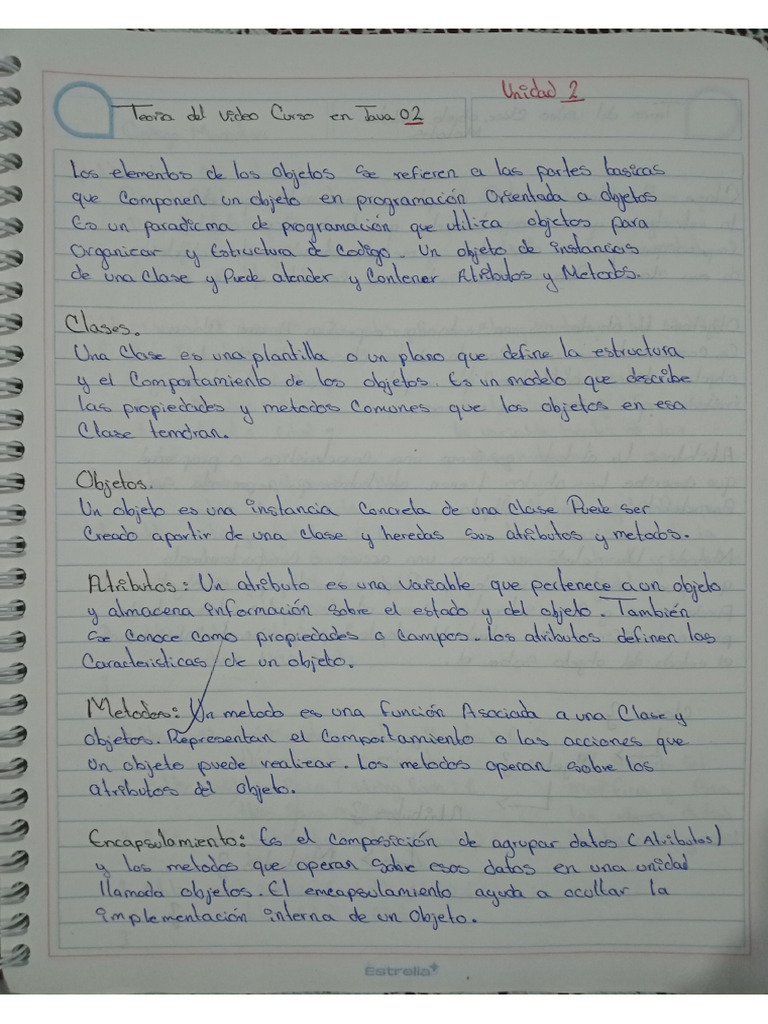 Unidad 2
Teoria del video Curso en Java 02
Los elementos de los objetos se refieren a las partes basicas
que componen un objeto en programación Orientada a objetos
Es un paradicma de programación que utiliza objetos para
Organizar y Estructura de Codigo. Un objeto de instancias
de una Clase y Puede atender y Contener Atributos y Metodos.
Clases.
Una Clase es una plantilla o un plano que define la estructura
y el Comportamiento de los objetos. Es un modelo que describe
las propiedades y metodos Comunes que los objetos en esa
Clase temdran.
Objetos.
Un objeto es una instancia Concreta de una clase Puede ser
Creado apartir de una clase y heredas sus atributos y metodos.
Atributos: Un atributo es una variable que pertenece a un objeto
y almacena información sobre el estado y del objeto. También
se Conoce como propiedades o Campos. Los atributos definen las
Caracteristicas de un objeto.
Metodos: Un metodo es una función Asociada a una Clase y
objetos. Representan el Comportamiento o las acciones que
Un objeto puede realizar. Los metodos operan sobre los
atributos del objeto.
Encapsulamiento: Es el composición de agrupar datos (Atributos)
y los metodos que operan sobre esos datos en una unidad
llamada objetos. El emcapsulamiento ayuda a ocultar la
implementación interna de un Objeto.
Estrella